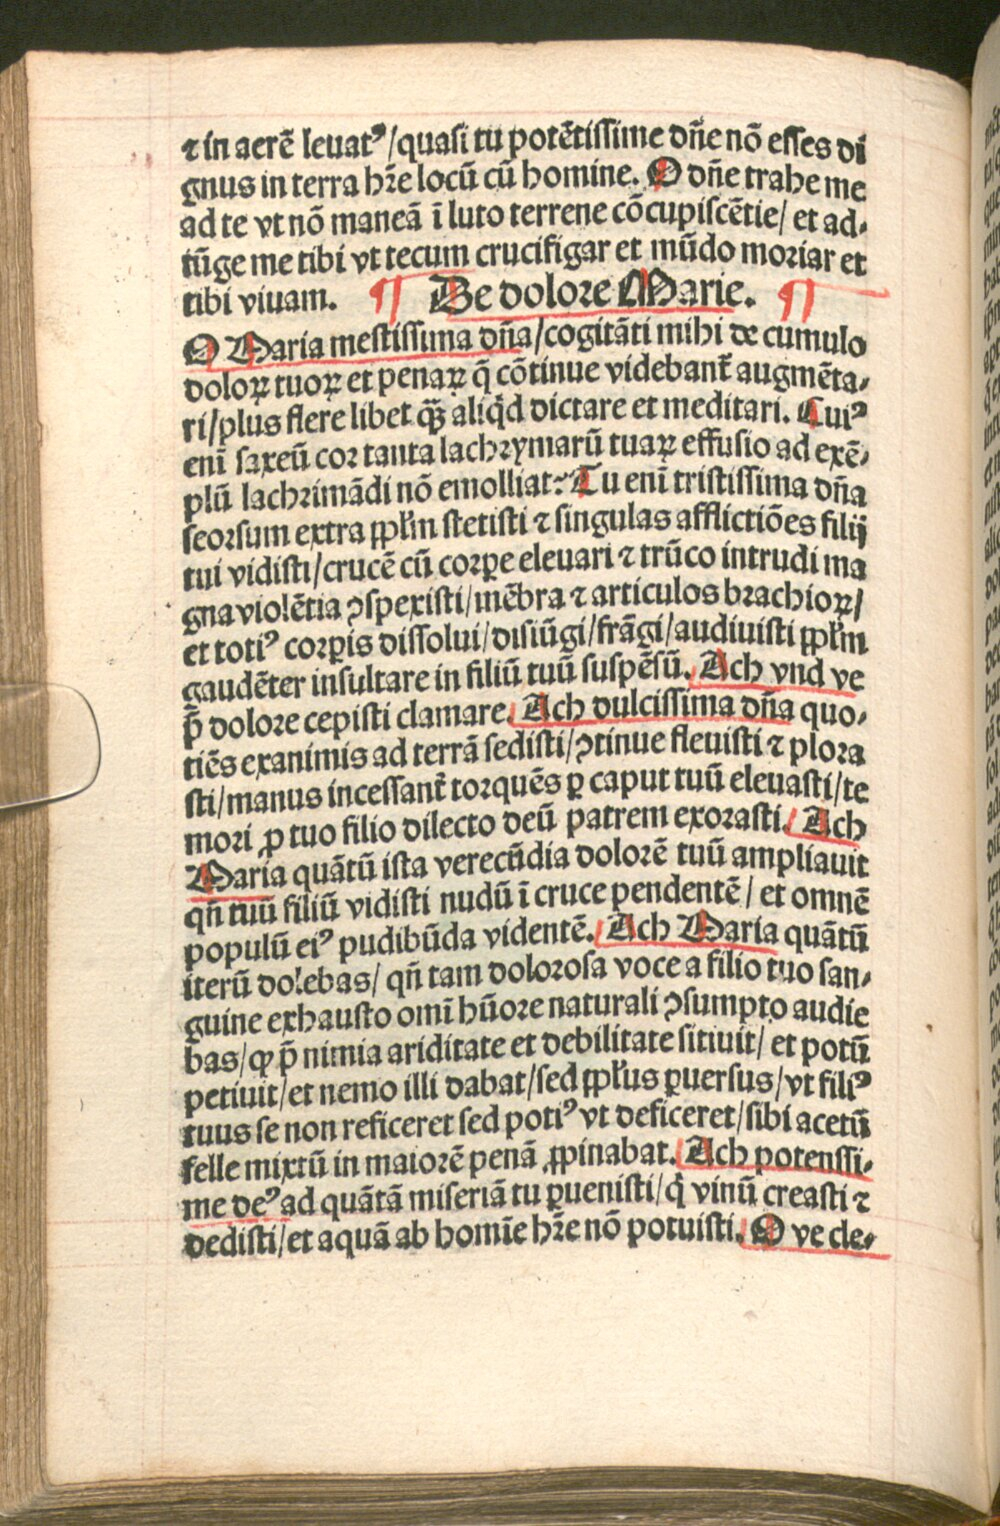 ⁊ in aerē leuatꝰ/quasi tu potētissime dn̄e nō esses di
gnus in terra hr̄e locū cū homine. O dn̄e trahe me
ad te vt nō maneā ī luto terrene cōcupiscētie/ et ad⸗
iūge me tibi vt tecum crucifigar et mūdo moriar et
tibi viuam. ¶ De dolore Marie. ¶
O Maria mestissima dn̄a/cogitāti mihi de cumulo
doloꝝ tuoꝝ et penaꝝ q̄ cōtinue videbant̄ augmēta⸗
ri/plus flere libet qꝫ̄ aliq̇d dictare et meditari. Cuiꝰ
enī saxeū cor tanta lachrymarū tuaꝝ effusio ad exē⸗
plū lachrimādi nō emolliat? Tu enī tristissima dn̄a
seorsum extra ꝓpl̄m stetisti ⁊ singulas afflictiōes filij
tui vidisti/crucē cū corꝑe eleuari ⁊ trūco intrudi ma
gna violētia ꝯspexisti/mēbra ⁊ articulos brachioꝝ/
et totiꝰ corꝑis dissolui/disiūgi/frāgi/audiuisti ꝓpl̄m
gaudēter insultare in filiū tuū suspēsū. Ach vnd ve
p̄ dolore cepisti clamare. Ach dulcissima dn̄a quo⸗
tiēs exanimis ad terrā sedisti/ꝯtinue fleuisti ⁊ plora
sti/manus incessant̄ torquēs ꝑ caput tuū eleuasti/te
mori ꝓ tuo filio dilecto deū patrem exorasti. Ach
Maria quātū ista verecūdia dolorē tuū ampliauit
qn̄ tuū filiū vidisti nudū ī cruce pendentē/ et omnē
populū eiꝰ pudibūda videntē. Ach Maria quātū
iterū dolebas/ qn̄ tam dolorosa voce a filio tuo san⸗
guine exhausto omī hūore naturali ꝯsumpto audie
bas/ꝙ p̄ nimia ariditate et debilitate sitiuit/ et potū
petiuit/et nemo illi dabat/sed ꝓpl̄us ꝑuersus/vt filiꝰ
tuus se non reficeret sed potiꝰ vt deficeret/sibi acetū
felle mixtū in maiorē penā ꝓpinabat. Ach potenssi⸗
me deꝰ ad quātā miseriā tu ꝑuenisti/q̇ vinū creasti ⁊
dedisti/et aquā ab homīe hr̄e nō potuisti. O ve cle⸗